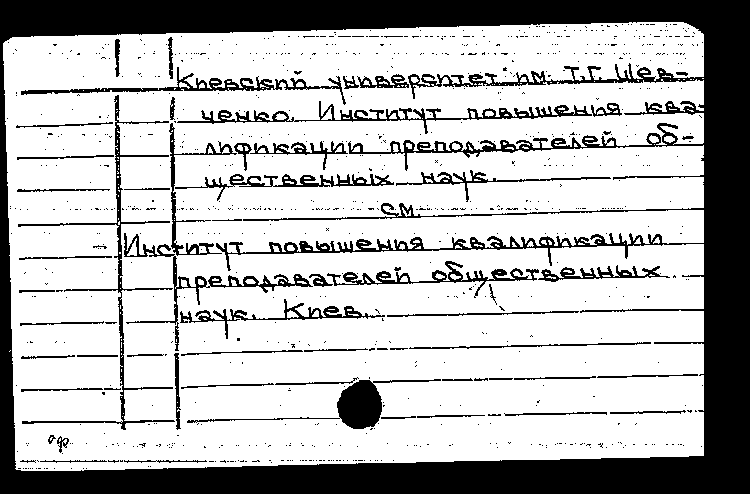 Киевский университет им. Т.Г. Шев-
ченко. Институт повышения ква-
лификации преподавателей об-
щественных наук.
см.
Институт повышения квалификации
преподавателей общественных
наук. Киев.